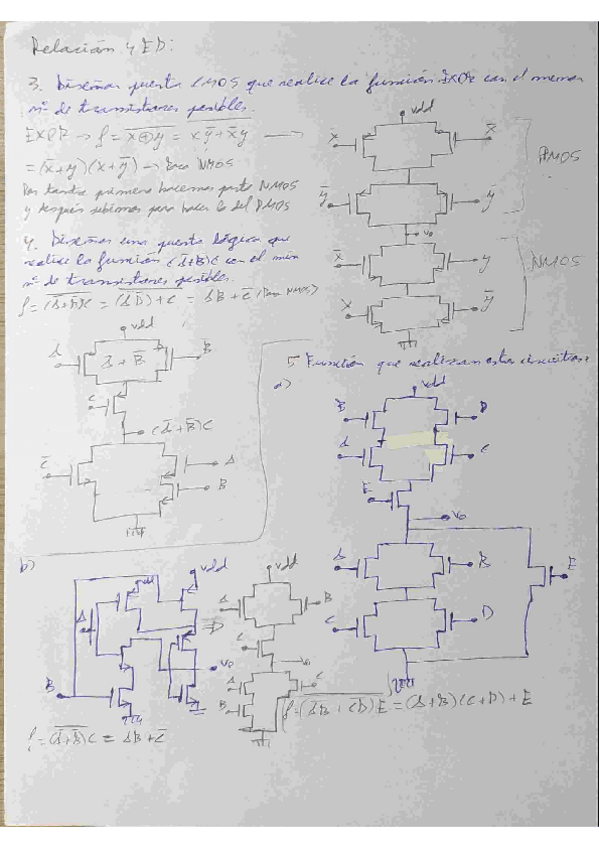 Relación 4 ED:
3. Diseñar puerta CMOS que realice la función EXOR con el menor
nº de transistores posibles.
EXOR → f = x⊕y = x ȳ + x̄ y →
= (x̄+y)(x+ȳ) → Para NMOS
Por tanto primero hacemos parte NMOS
y después subimos para hacer lo del PMOS
vdd
x
x̄
PMOS
ȳ
ȳ
v0
x̄
y
NMOS
x
ȳ
4. Diseñar una puerta lógica que
realice la función (Ā+B̄)C con el min
nº de transistores posibles.
f = (Ā+B̄)C = (Ā+B̄)+C̄ = AB + C̄ (Para NMOS)
vdd
A
Ā + B̄
B
C
(Ā+B̄)C
C̄
A
B
5 Función que realizan estos circuitos:
a)
vdd
B
D
A
C
E
v0
A
B
E
C
D
f = (ĀB̄ + C̄D̄)Ē = (A+B)(C+D) + E
b)
vdd
A
B
v0
vdd
A
B
C
v0
A
C
B
f = (Ā+B̄)C = AB + C̄